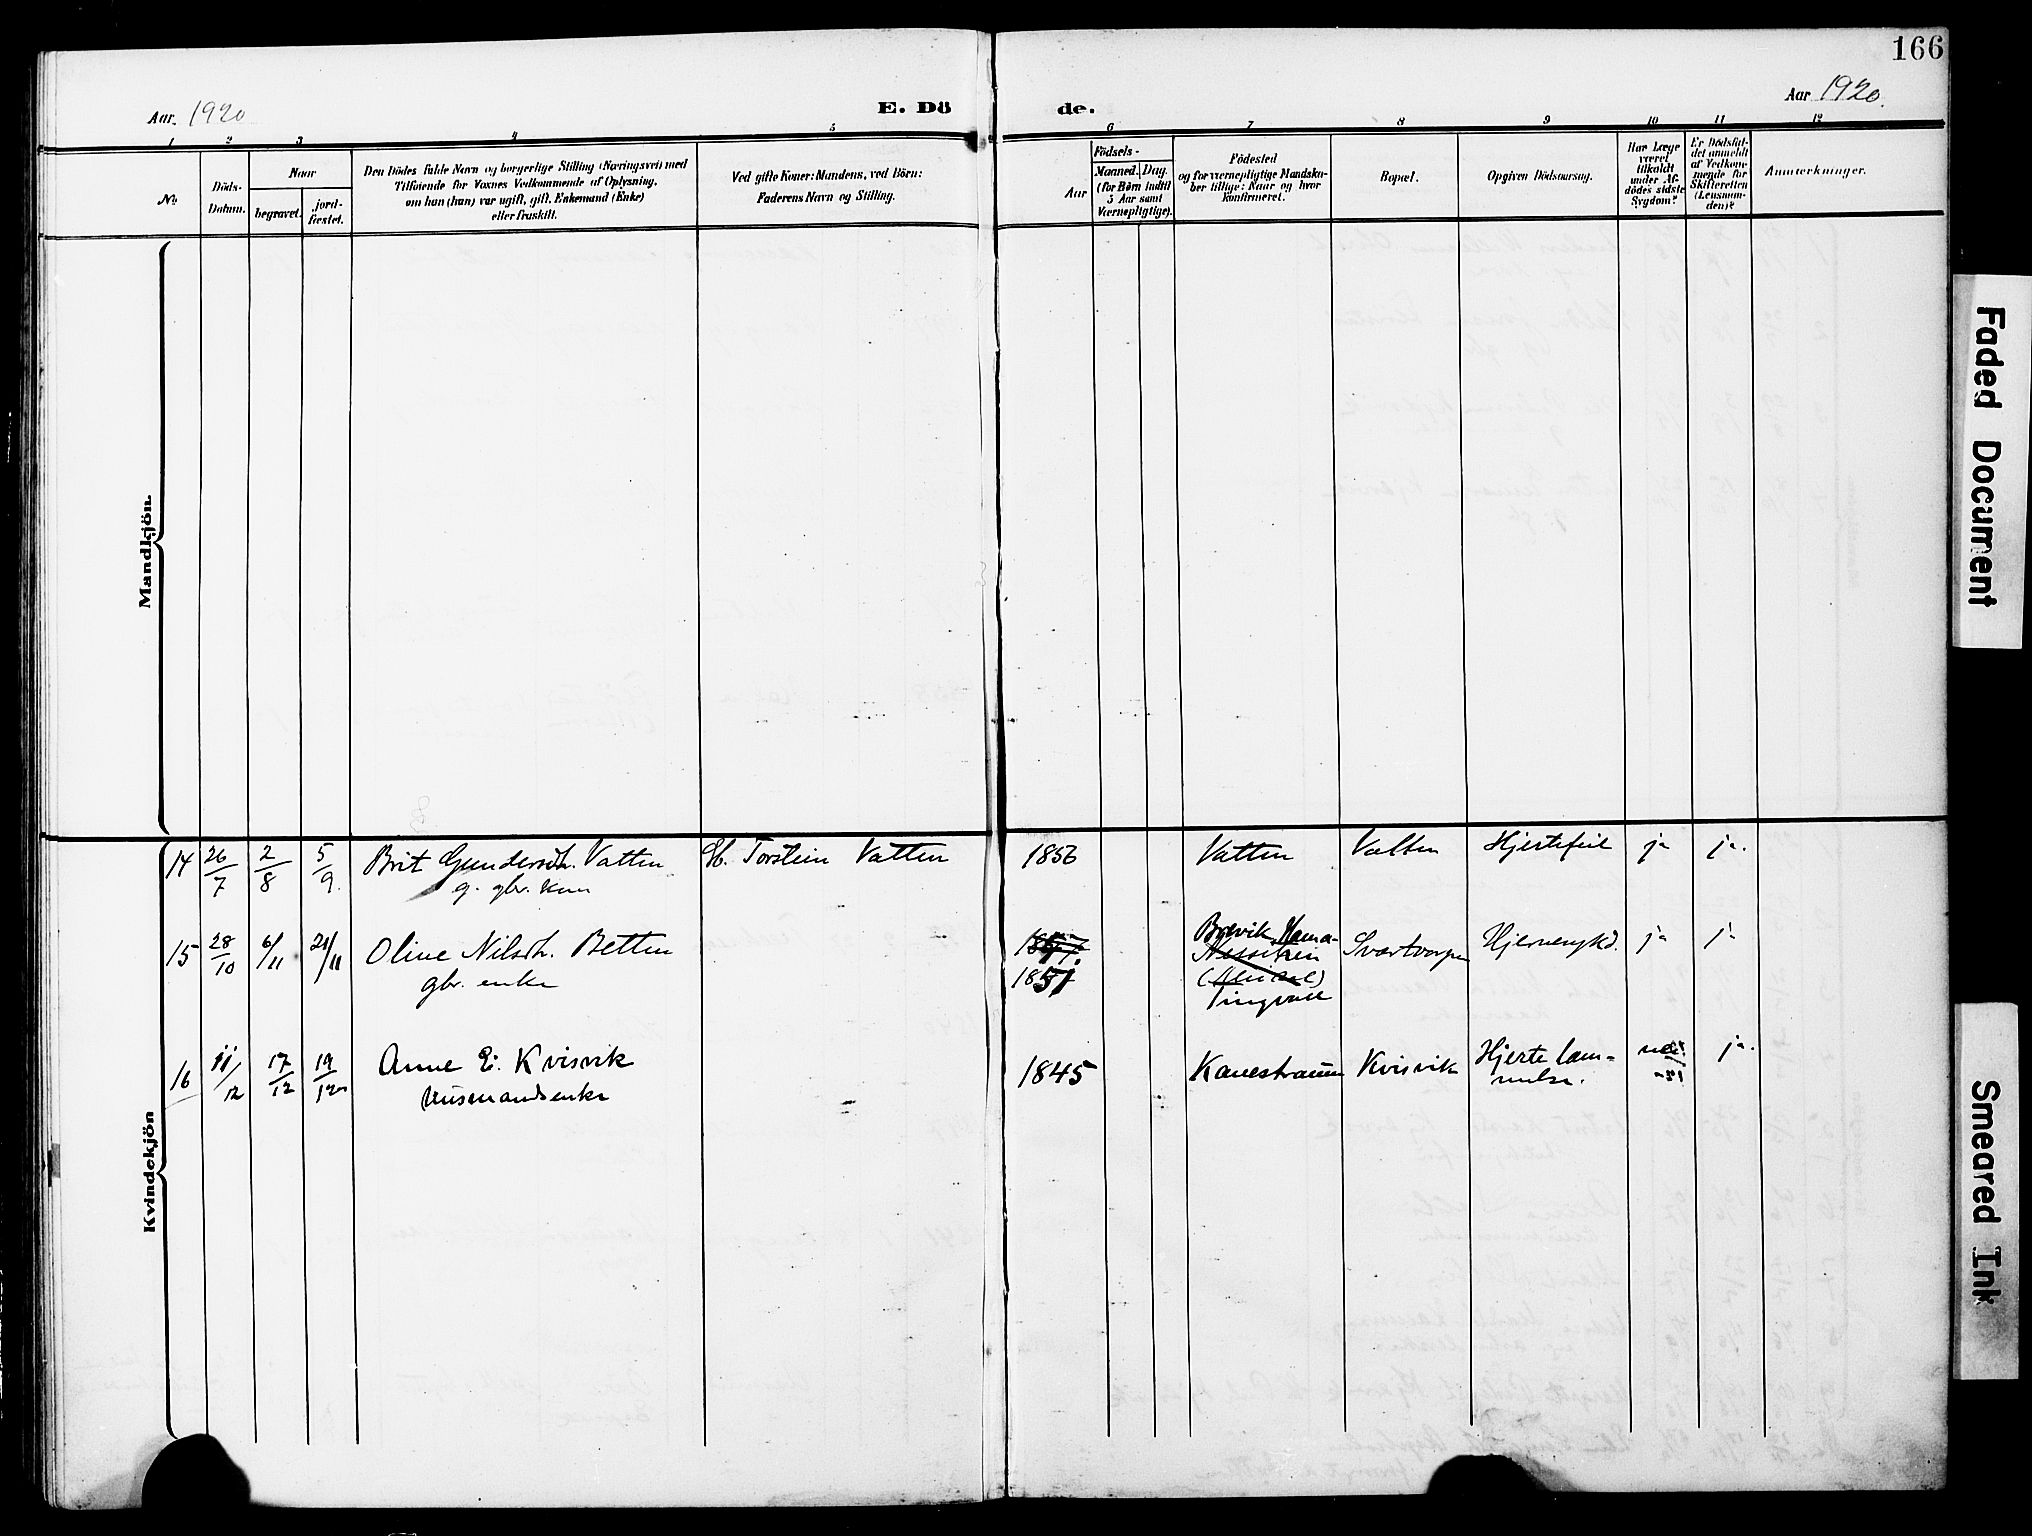 166
Aar. 1920
E. Dö
de.
Aar 1920.
1 2 3 4 5 6 7 8 9 10 11 12
No.
Döds-
Datum.
Naar
begravet.
jord-
fæstet.
Den Dödes fulde Navn og borgerlige Stilling (Næringsvei) med
Tilföiende for Voxnes Vedkommende af Oplysning,
om han (hun) var ugift, gift, Enkemand (Enke)
eller fraskilt.
Ved gifte Koner: Mandens, ved Börn:
Faderens Navn og Stilling.
Födsels-
Aar
Maaned. Dag.
(for Börn indtil
5 Aar samt
Værnepligtige).
Födested
og for værnepligtige Mandska-
ber tillige: Naar og hvor
konfirmeret.
Bopæl.
Opgiven Dödsaarsag.
Har Læge
været
tilkaldt
under Af-
dödes sidste
Sygdom?
Er Dödsfal-
det anmeldt
af Vedkom-
mende for
Skifteretten
(Lensman-
den)?
Anmærkninger.
Mandkjön.
Kvindekjön
14 26/7 2/8 5/9. Brit Gundersdt. Vatten H. Torstein Vatten 1856 Vatten Vatten Hjertefeil ja ja.
g. gbr. kone
15 28/10 6/11 21/11 Oline Nilsdt. Betten Brevik Svartvorpen Hjernesykd. ja ja
gbr. enke 1851
Tingvoll
16 11/12 17/12 19/12 Anne E. Kvisvik 1845 Kanestraum Kvisvik Hjerte lam- nei ja.
Husmandsenke melse.
Faded Document
Smeared Ink